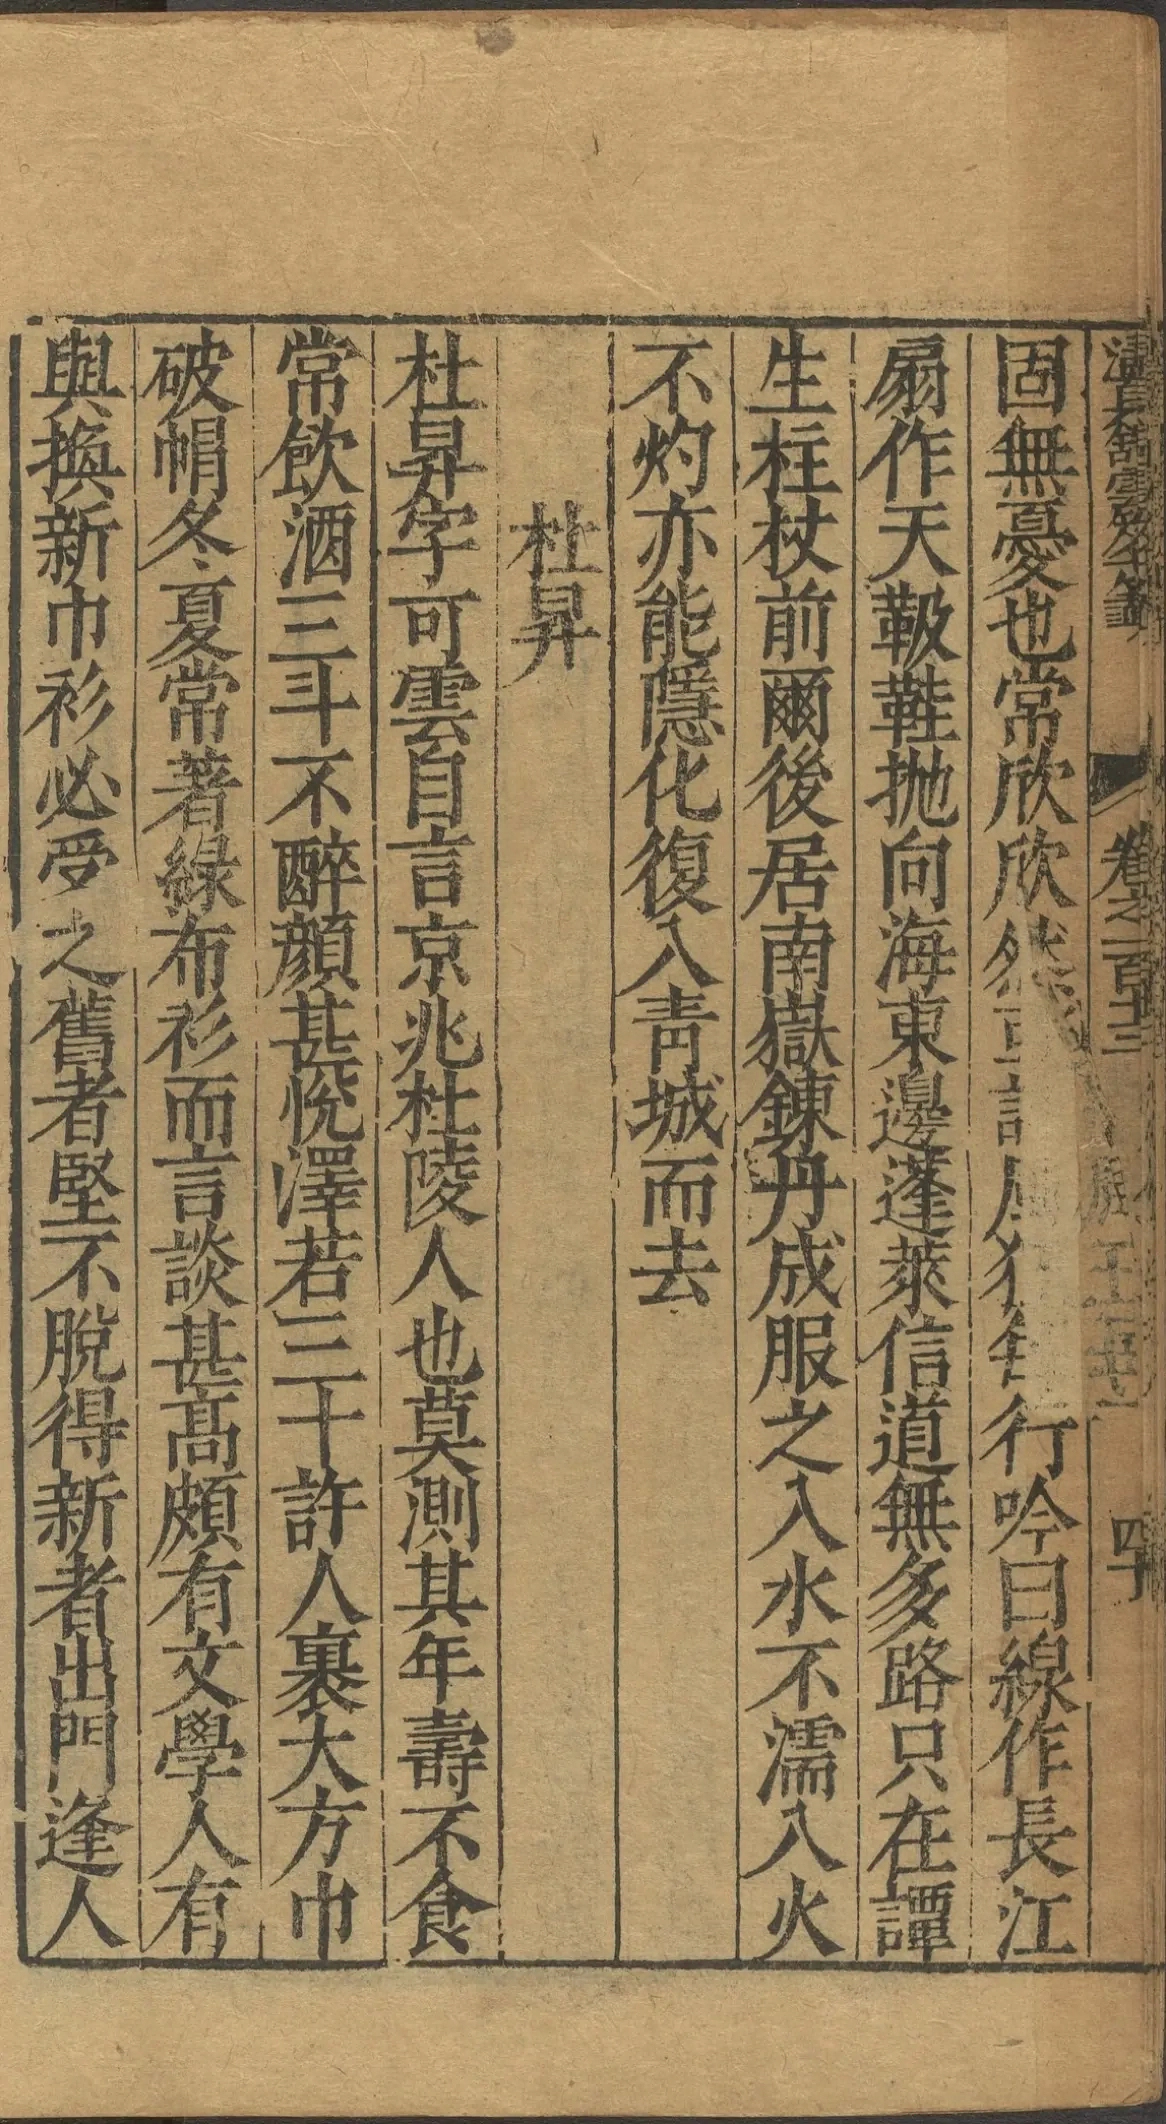 卷之一百十三
四
固無憂也常欣欣然 行吟曰線作長江
扇作天靸鞋抛向海東邊蓬萊信道無多路只在譚
生柱杖前爾後居南嶽鍊丹成服之入水不濡入火
不灼亦能隱化復入青城而去
杜昇
杜昇字可雲自言京兆杜陵人也莫測其年壽不食
常飲酒三斗不醉顔甚悅澤若三十許人裹大方巾
破帽冬夏常著緑布衫而言談甚高頗有文學人有
與換新巾衫必受之舊者堅不脫得新者出門逢人